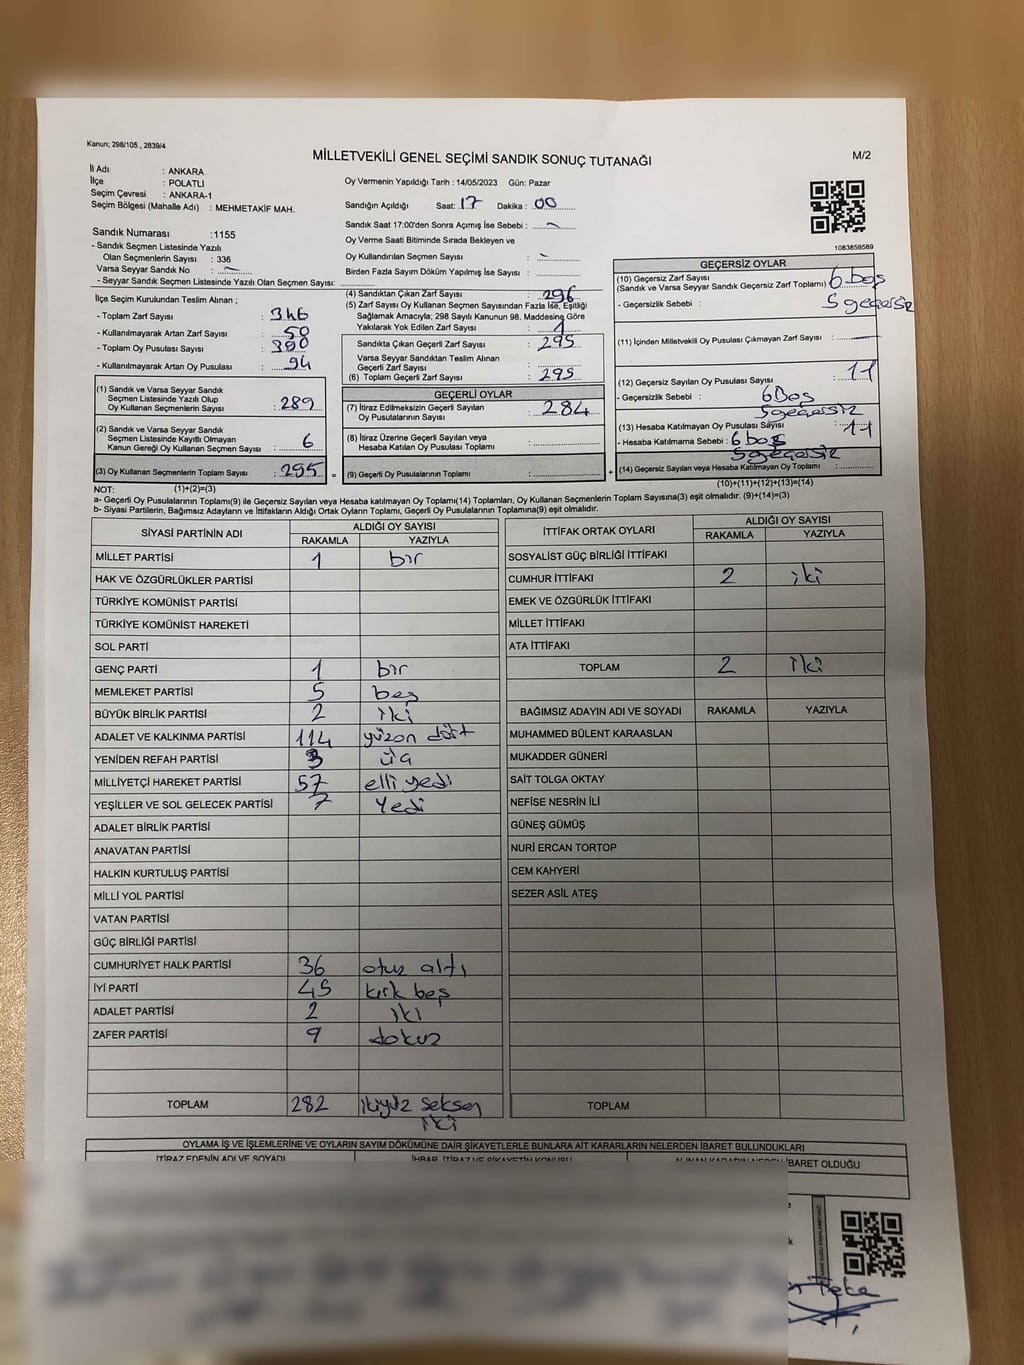 Kanun; 298/105 , 2839/4
MİLLETVEKİLİ GENEL SEÇİMİ SANDIK SONUÇ TUTANAĞI
M/2
İl Adı : ANKARA
İlçe : POLATLI
Seçim Çevresi : ANKARA-1
Seçim Bölgesi (Mahalle Adı) : MEHMETAKİF MAH.
Sandık Numarası :1155
- Sandık Seçmen Listesinde Yazılı
Olan Seçmenlerin Sayısı : 336
Varsa Seyyar Sandık No :
- Seyyar Sandık Seçmen Listesinde Yazılı Olan Seçmen Sayısı:
Oy Vermenin Yapıldığı Tarih : 14/05/2023 Gün: Pazar
Sandığın Açıldığı Saat: 17 Dakika : 00
Sandık Saat 17:00'den Sonra Açımış İse Sebebi :
Oy Verme Saati Bitiminde Sırada Bekleyen ve
Oy Kullandırılan Seçmen Sayısı :
Birden Fazla Sayım Döküm Yapılmış İse Sayısı :
1083859589
İlçe Seçim Kurulundan Teslim Alınan ;
- Toplam Zarf Sayısı : 346
- Kullanılmayarak Artan Zarf Sayısı : 50
- Toplam Oy Pusulası Sayısı : 390
- Kullanılmayarak Artan Oy Pusulası : 94
(1) Sandık ve Varsa Seyyar Sandık
Seçmen Listesinde Yazılı Olup
Oy Kullanan Seçmenlerin Sayısı : 289
(2) Sandık ve Varsa Seyyar Sandık
Seçmen Listesinde Kayıtlı Olmayan
Kanun Gereği Oy Kullanan Seçmen Sayısı : 6
(3) Oy Kullanan Seçmenlerin Toplam Sayısı : 295 =
(1)+(2)=(3)
(4) Sandıktan Çıkan Zarf Sayısı : 296
(5) Zarf Sayısı Oy Kullanan Seçmen Sayısından Fazla İse, Eşitliği
Sağlamak Amacıyla; 298 Sayılı Kanunun 98. Maddesine Göre
Yakılarak Yok Edilen Zarf Sayısı : 1
Sandıkta Çıkan Geçerli Zarf Sayısı : 295
Varsa Seyyar Sandıktan Teslim Alınan
Geçerli Zarf Sayısı :
(6) Toplam Geçerli Zarf Sayısı : 295
GEÇERLİ OYLAR
(7) İtiraz Edilmeksizin Geçerli Sayılan
Oy Pusulalarının Sayısı : 284
(8) İtiraz Üzerine Geçerli Sayılan veya
Hesaba Katılan Oy Pusulası Toplamı :
(9) Geçerli Oy Pusulalarının Toplamı : +
GEÇERSİZ OYLAR
(10) Geçersiz Zarf Sayısı
(Sandık ve Varsa Seyyar Sandık Geçersiz Zarf Toplamı) : 6 boş
- Geçersizlik Sebebi : 5 geçersiz
(11) İçinden Milletvekili Oy Pusulası Çıkmayan Zarf Sayısı :
(12) Geçersiz Sayılan Oy Pusulası Sayısı : 11
- Geçersizlik Sebebi : 6 Boş
5 geçersiz
(13) Hesaba Katılmayan Oy Pusulası Sayısı : 11
- Hesaba Katılmama Sebebi : 6 boş
5 geçersiz
(14) Geçersiz Sayılan veya Hesaba Katılmayan Oy Toplamı :
(10)+(11)+(12)+(13)=(14)
NOT:
a- Geçerli Oy Pusulalarının Toplamı(9) ile Geçersiz Sayılan veya Hesaba katılmayan Oy Toplamı(14) Toplamları, Oy Kullanan Seçmenlerin Toplam Sayısına(3) eşit olmalıdır. (9)+(14)=(3)
b- Siyasi Partilerin, Bağımsız Adayların ve İttifakların Aldığı Ortak Oyların Toplamı, Geçerli Oy Pusulalarının Toplamına(9) eşit olmalıdır.
SİYASİ PARTİNİN ADI ALDIĞI OY SAYISI
RAKAMLA YAZIYLA
MİLLET PARTİSİ 1 bir
HAK VE ÖZGÜRLÜKLER PARTİSİ
TÜRKİYE KOMÜNİST PARTİSİ
TÜRKİYE KOMÜNİST HAREKETİ
SOL PARTİ
GENÇ PARTİ 1 bir
MEMLEKET PARTİSİ 5 beş
BÜYÜK BİRLİK PARTİSİ 2 iki
ADALET VE KALKINMA PARTİSİ 114 yüzon dört
YENİDEN REFAH PARTİSİ 3 üç
MİLLİYETÇİ HAREKET PARTİSİ 57 elli yedi
YEŞİLLER VE SOL GELECEK PARTİSİ 7 Yedi
ADALET BİRLİK PARTİSİ
ANAVATAN PARTİSİ
HALKIN KURTULUŞ PARTİSİ
MİLLİ YOL PARTİSİ
VATAN PARTİSİ
GÜÇ BİRLİĞİ PARTİSİ
CUMHURİYET HALK PARTİSİ 36 otuz altı
İYİ PARTİ 45 kırk beş
ADALET PARTİSİ 2 iki
ZAFER PARTİSİ 9 dokuz
TOPLAM 282 ikiyüz seksen
iki
İTTİFAK ORTAK OYLARI ALDIĞI OY SAYISI
RAKAMLA YAZIYLA
SOSYALİST GÜÇ BİRLİĞİ İTTİFAKI
CUMHUR İTTİFAKI 2 iki
EMEK VE ÖZGÜRLÜK İTTİFAKI
MİLLET İTTİFAKI
ATA İTTİFAKI
TOPLAM 2 iki
BAĞIMSIZ ADAYIN ADI VE SOYADI RAKAMLA YAZIYLA
MUHAMMED BÜLENT KARAASLAN
MUKADDER GÜNERİ
SAİT TOLGA OKTAY
NEFİSE NESRİN İLİ
GÜNEŞ GÜMÜŞ
NURİ ERCAN TORTOP
CEM KAHYERİ
SEZER ASİL ATEŞ
TOPLAM
OYLAMA İŞ VE İŞLEMLERİNE VE OYLARIN SAYIM DÖKÜMÜNE DAİR ŞİKAYETLERLE BUNLARA AİT KARARLARIN NELERDEN İBARET BULUNDUKLARI
İTİRAZ EDENİN ADI VE SOYADI İHBAR, İTİRAZ VE ŞİKAYETİN KONUSU ALINAN KARARIN NEDEN İBARET OLDUĞU